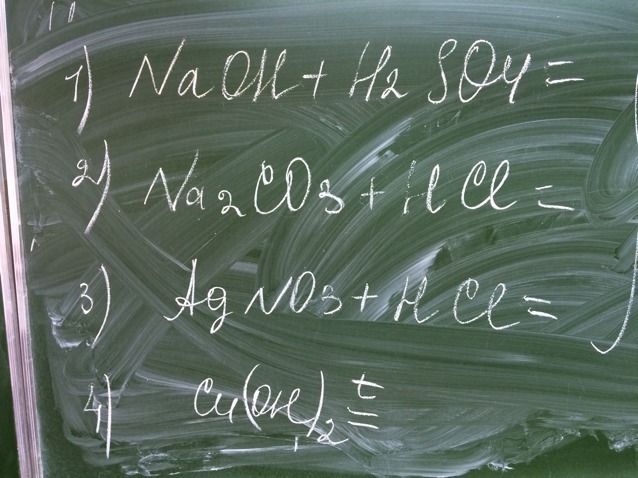 1) NaOH + H2SO4 =
2) Na2CO3 + HCl =
3) AgNO3 + HCl =
4) Cu(OH)2 t=